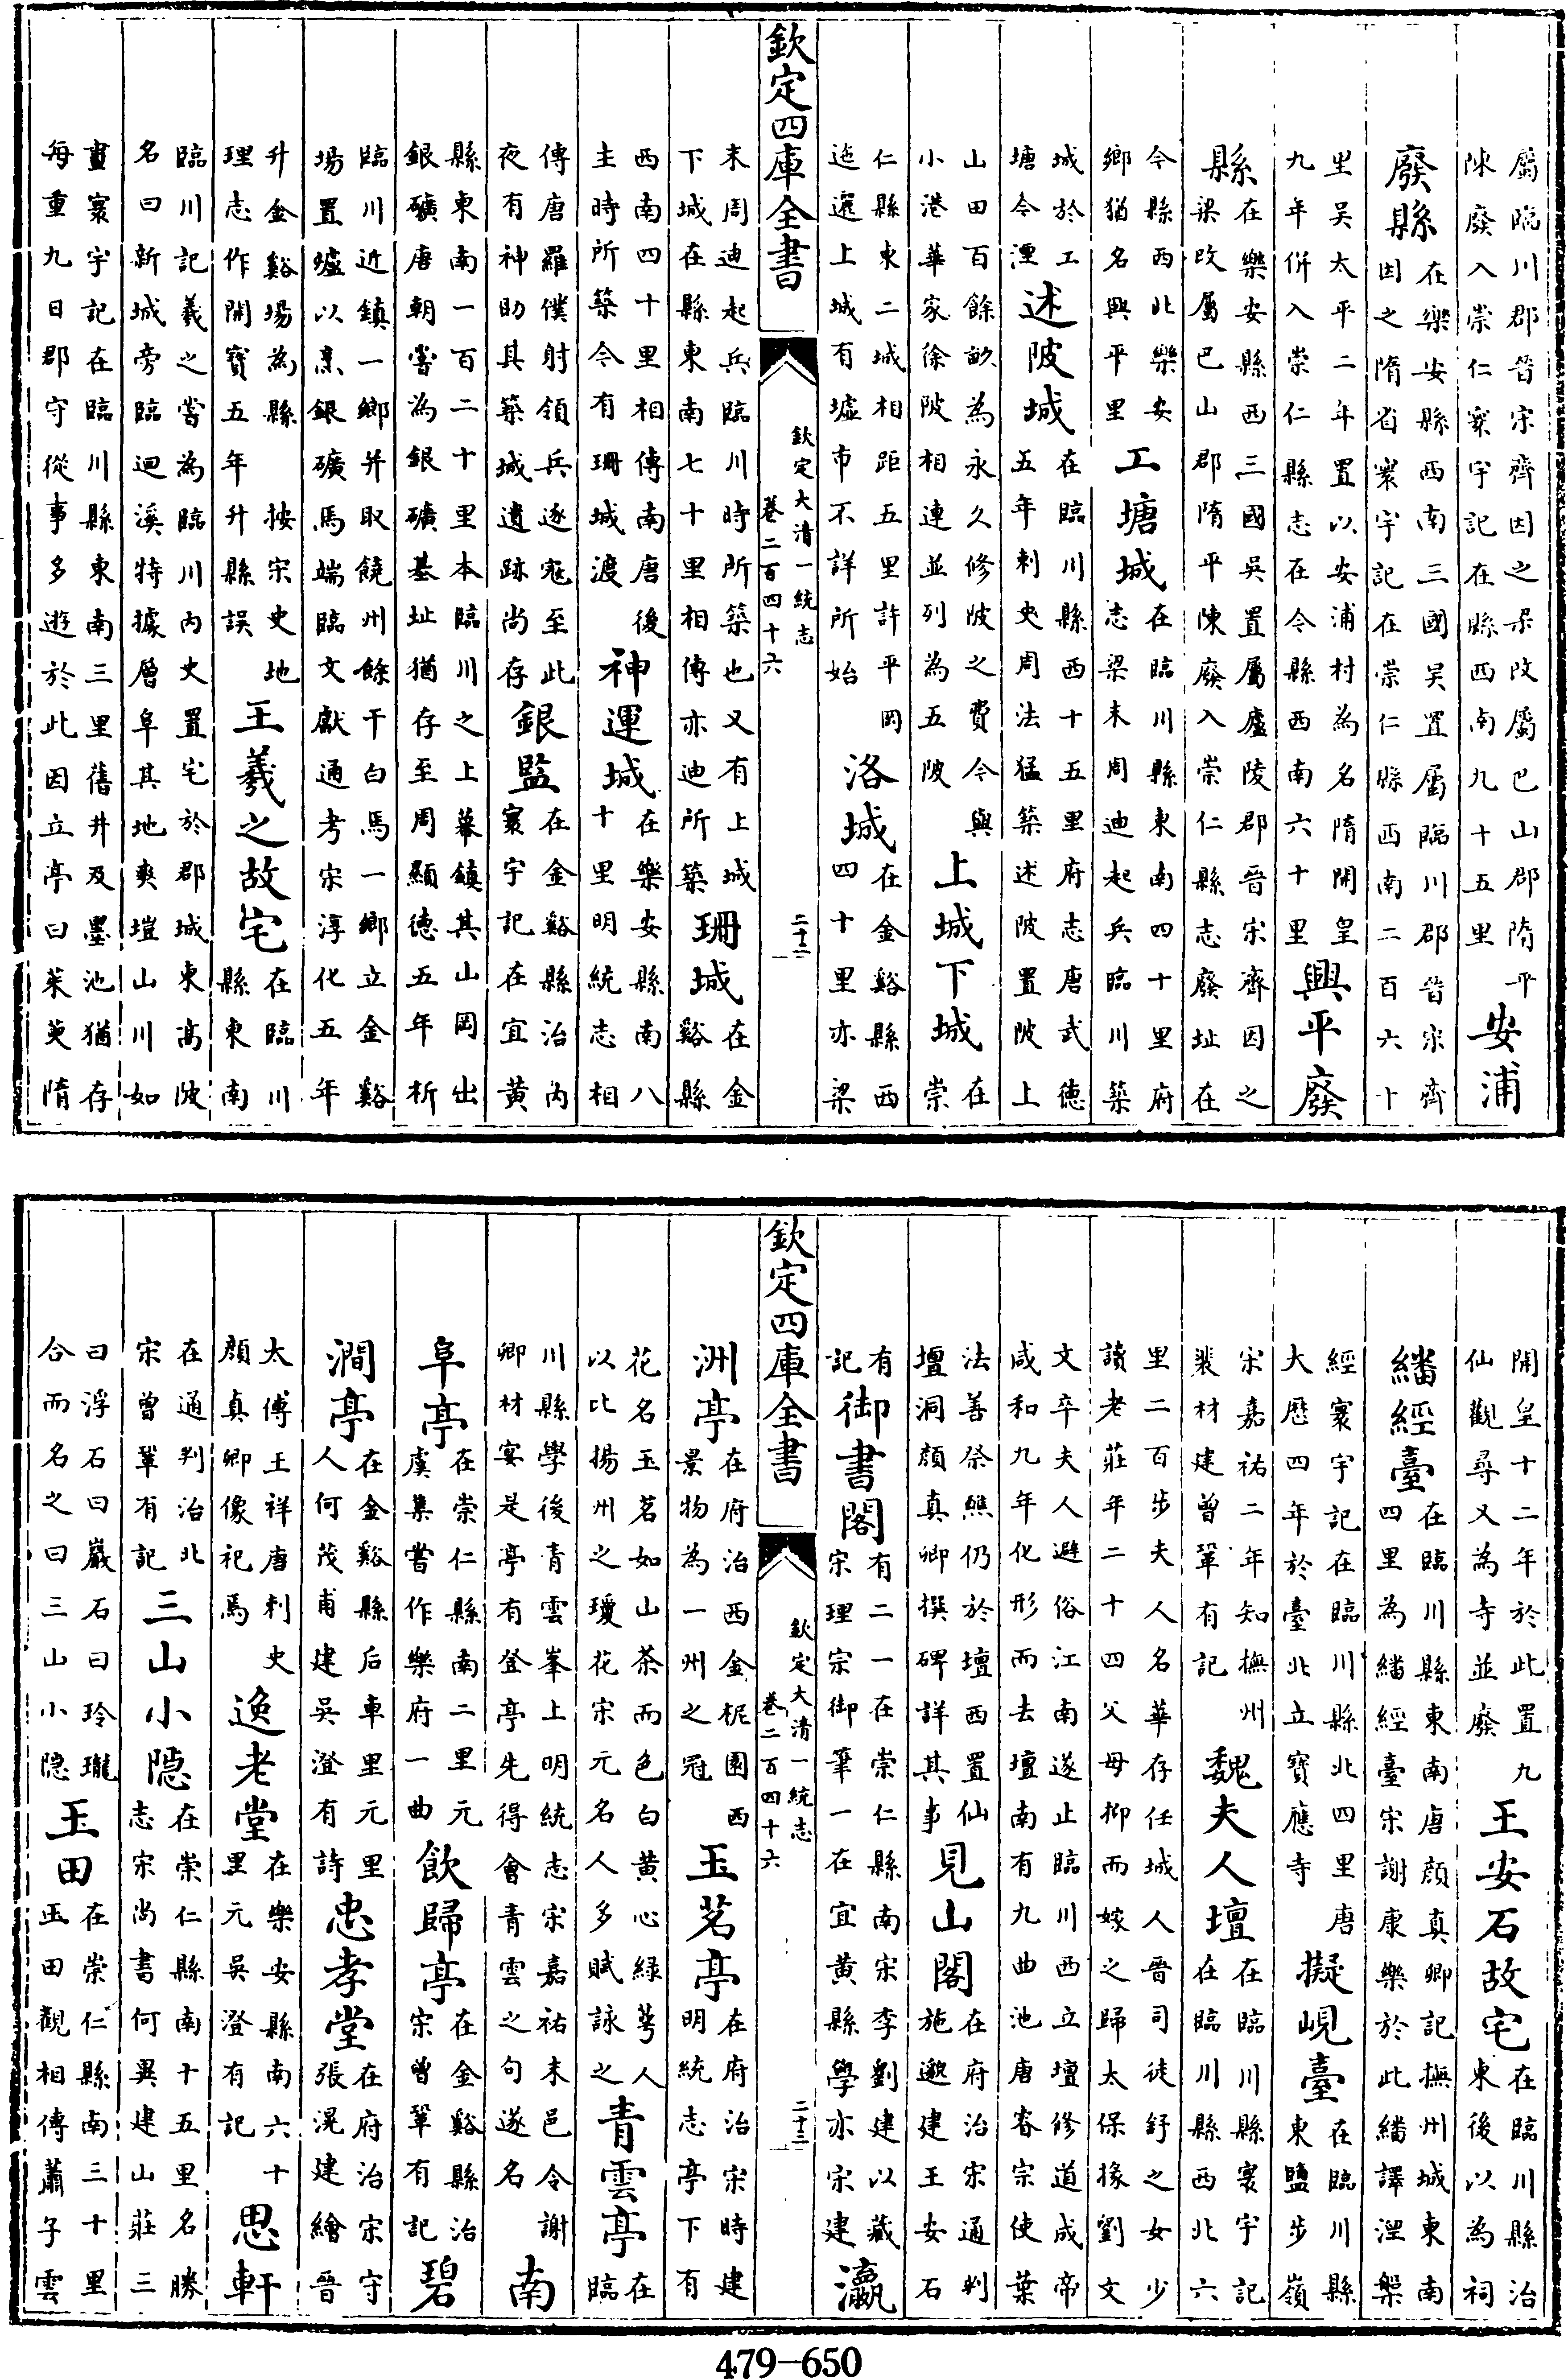 屬臨川郡晉宋齊因之梁改屬巴山郡隋平陳廢入崇仁寰宇記在縣西南九十五里安浦
廢縣在樂安縣西南三國吳置屬臨川郡晉宋齊因之隋省寰宇記在崇仁縣西南二百六十
里吳太平二年置以安浦村為名隋開皇九年併入崇仁縣志在今縣西南六十里興平廢
縣在樂安縣西三國吳置屬廬陵郡晉宋齊因之梁改屬巴山郡隋平陳廢入崇仁縣志廢址在
今縣西北樂安鄉猶名興平里工塘城在臨川縣東南四十里府志梁末周迪起兵臨川築
城於工塘今湮述陂城在臨川縣西十五里府志唐武德五年刺史周法猛築述陂置陂上
山田百餘畝為永久修陂之費今與小港華家徐陂相連並列為五陂上城下城在崇
仁縣東二城相距五里許平岡迤邐上城有墟市不詳所始洛城在金谿縣西四十里亦梁
欽定四庫全書
欽定大清一統志
卷二百四十六
二十二
末周迪起兵臨川時所築也又有上城下城在縣東南七十里相傳亦迪所築珊城在金谿縣
西南四十里相傳南唐後主時所築今有珊城渡神運城在樂安縣南八十里明統志相
傳唐羅僕射領兵逐寇至此夜有神助其築城遺跡尚存銀監在金谿縣治內寰宇記在宜黃
縣東南一百二十里本臨川之上幕鎮其山岡出銀礦唐朝嘗為銀礦基址猶存至周顯德五年析
臨川近鎮一鄉并取饒州餘干白馬一鄉立金谿場置爐以烹銀礦馬端臨文獻通考宋淳化五年
升金谿場為縣按宋史地理志作開寶五年升縣誤王羲之故宅在臨川縣東南
臨川記羲之嘗為臨川內史置宅於郡城東高陂名曰新城旁臨迴溪特據層阜其地爽塏山川如
畫寰宇記在臨川縣東南三里舊井及墨池猶存每重九日郡守從事多遊於此因立亭曰茱萸隋
開皇十二年於此置九仙觀尋又為寺並廢王安石故宅在臨川縣治東後以為祠
繙經臺在臨川縣東南唐顏真卿記撫州城東南四里為繙經臺宋謝康樂於此繙譯湼槃
經寰宇記在臨川縣北四里唐大歷四年於臺北立寶應寺擬峴臺在臨川縣東鹽步嶺
宋嘉祐二年知撫州裴材建曾鞏有記魏夫人壇在臨川縣寰宇記在臨川縣西北六
里二百步夫人名華存任城人晉司徒舒之女少讀老莊年二十四父母抑而嫁之歸太保掾劉文
文卒夫人避俗江南遂止臨川西立壇修道成帝咸和九年化形而去壇南有九曲池唐睿宗使葉
法善祭醮仍於壇西置仙壇洞顏真卿撰碑詳其事見山閣在府治宋通判施邈建王安石
有記御書閣有二一在崇仁縣南宋李劉建以藏宋理宗御筆一在宜黃縣學亦宋建瀛
欽定四庫全書
欽定大清一統志
卷二百四十六
二十三
洲亭在府治西金柅園西景物為一州之冠玉茗亭在府治宋時建明統志亭下有
花名玉茗如山茶而色白黃心綠萼人以比揚州之瓊花宋元名人多賦詠之青雲亭在臨
川縣學後青雲峯上明統志宋嘉祐末邑令謝卿材宴是亭有登亭先得會青雲之句遂名南
阜亭在崇仁縣南二里元虞集嘗作樂府一曲飲歸亭在金谿縣治宋曾鞏有記碧
澗亭在金谿縣后車里元里人何茂甫建吳澄有詩忠孝堂在府治宋守張滉建繪晉
太傅王祥唐刺史顏真卿像祀焉逸老堂在樂安縣南六十里元吳澄有記思軒
在通判治北宋曾鞏有記三山小隱在崇仁縣南十五里名勝志宋尚書何異建山莊三
曰浮石曰巖石曰玲瓏合而名之曰三山小隱玉田在崇仁縣南三十里玉田觀相傳蕭子雲
479-650